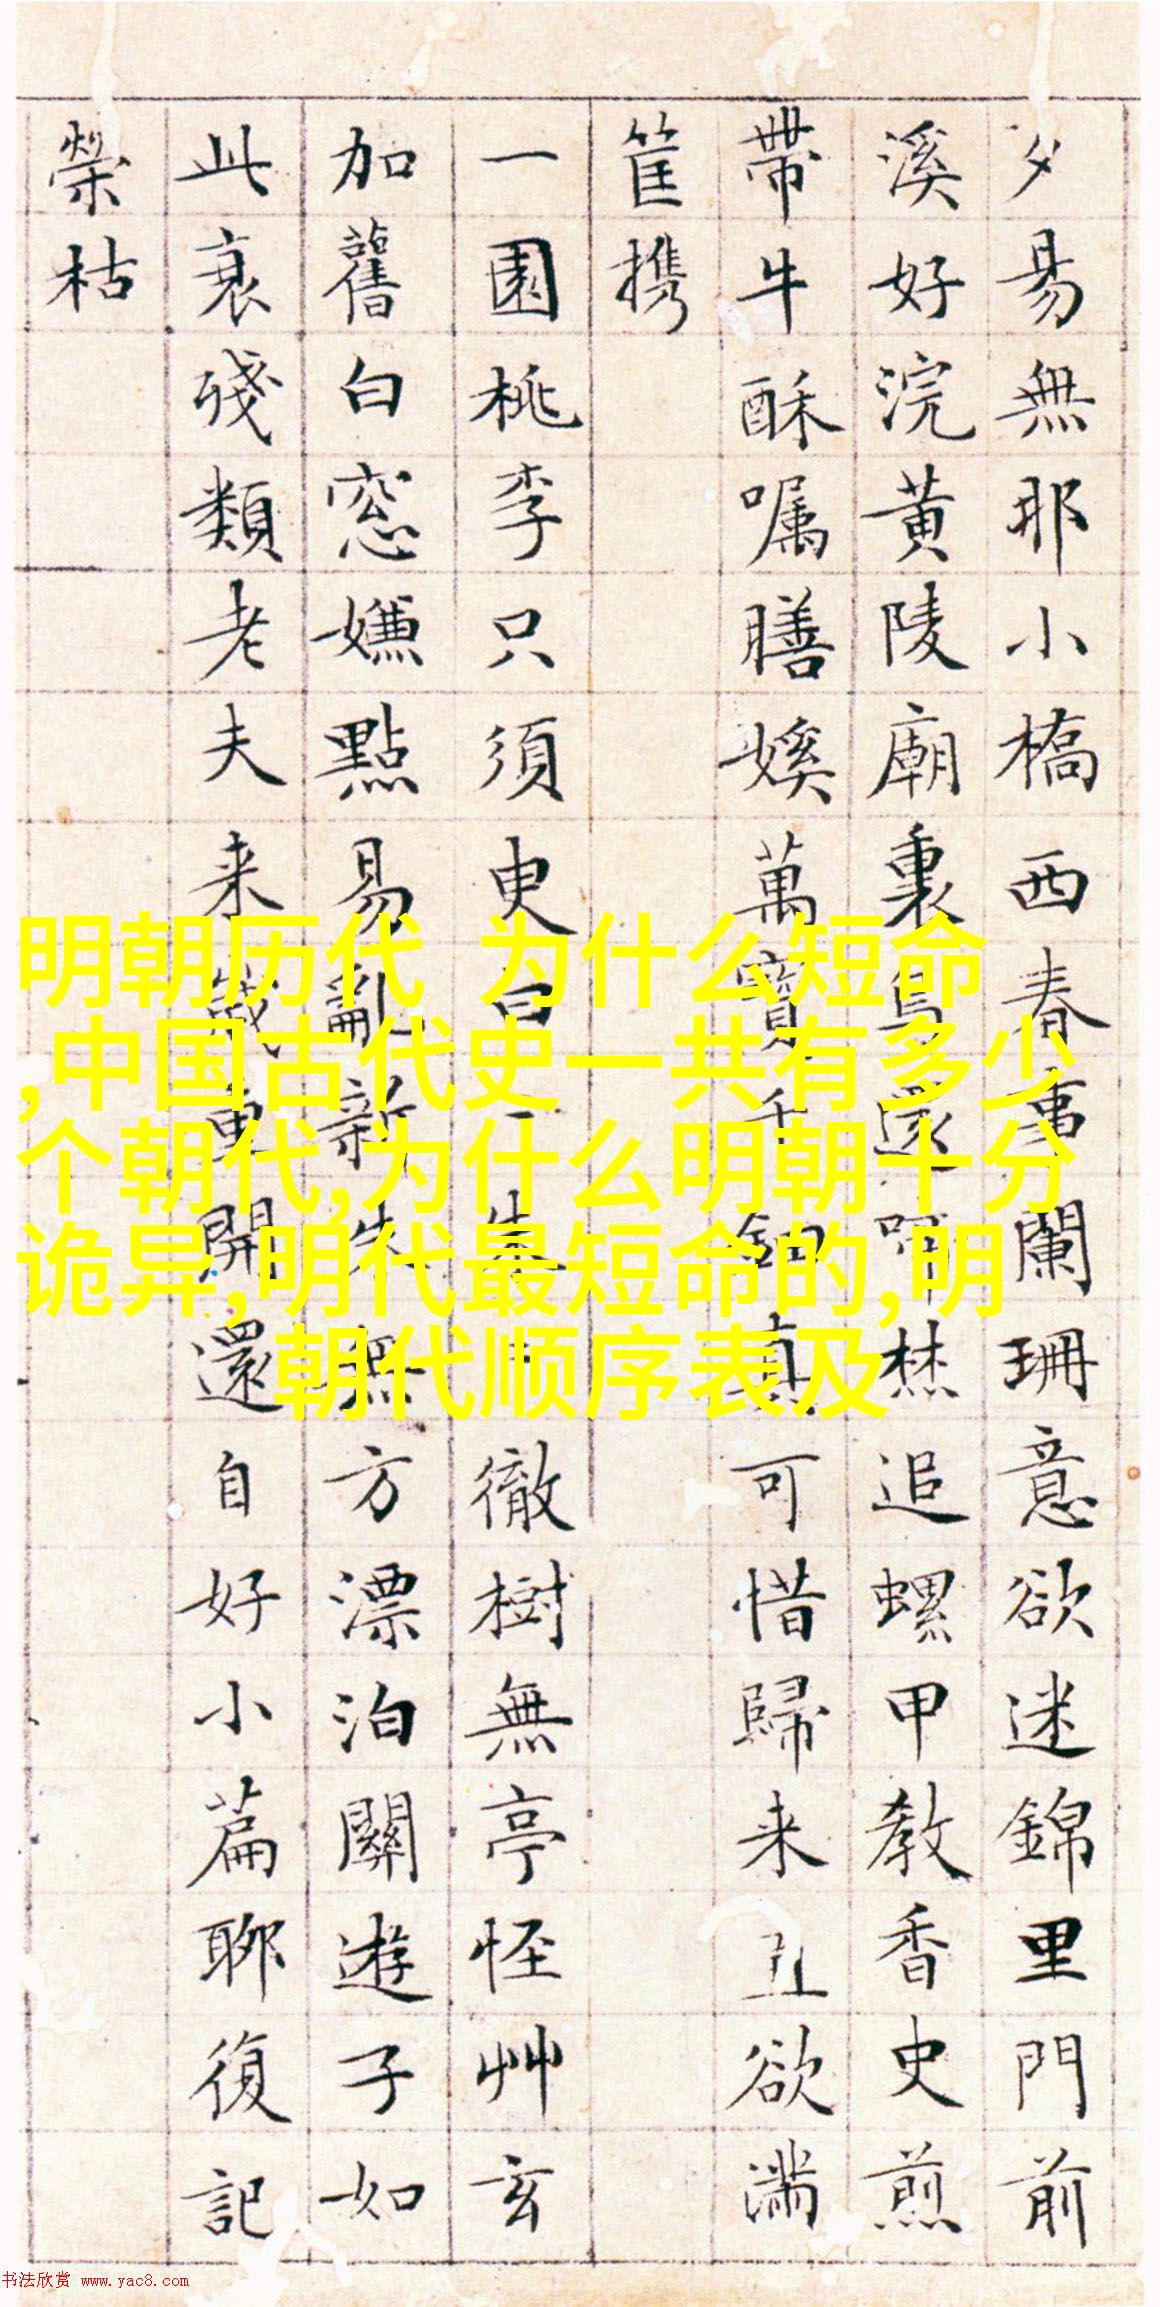 夕易無那小橋西春事闌珊意欲迷錦里門前
溪好浣黃陵廟裏鳥還啼焚追螺甲教香史煎
帶牛酥嘱膳媛萬寶千釧真可惜歸来丑欲满
筐携
一園桃李只須臾白白朱朱徹樹無亭怪艸玄
加舊白窓嫌點易亂新朱無方漂泊關遊子如
此衰殘類老夫来歲重開還自好小篇聊復記
榮枯
明朝历代 为什么短命
,中国古代史一共有多少
个朝代,为什么明朝十分
诡异,明代最短命的,明
朝代顺序表及
书法欣赏 www.yac8.com